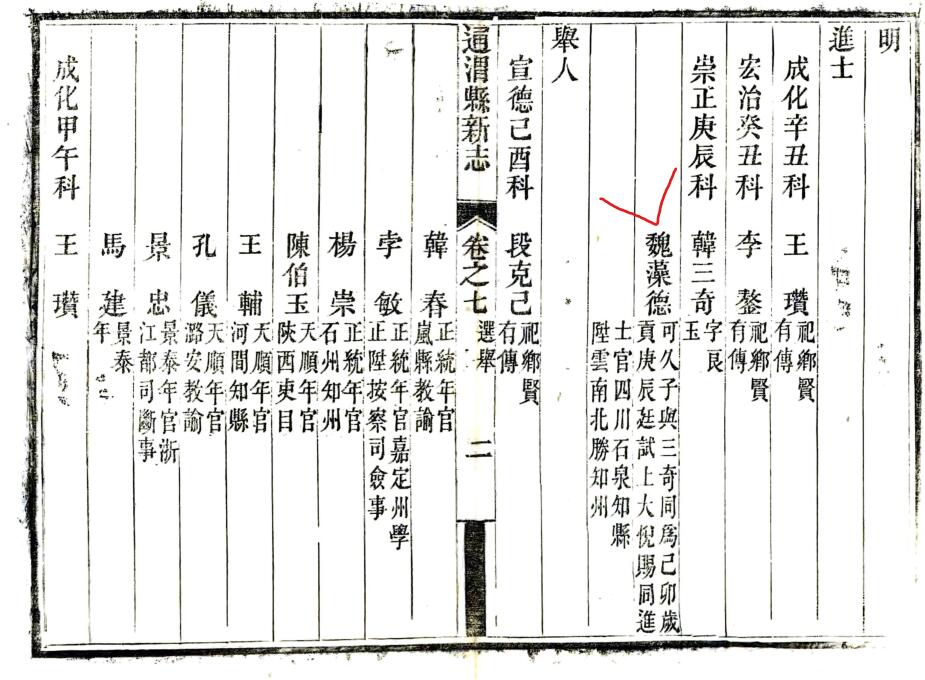 明
進士
成化辛丑科　王　瓚　祀鄉賢有傳
宏治癸丑科　李　鏊　祀鄉賢有傳
崇正庚辰科　韓三奇　字辰玉
魏藻德　可久子與三奇同爲己卯歲
貢庚辰廷試上大悅賜同進
士官四川石泉知縣
陞雲南北勝知州
舉人
宣德己酉科　段克己　祀鄉賢有傳
通渭縣新志　卷之七　選舉　二
韓　春　正統年官嵐縣教諭
李　敏　正統年官嘉定州學正陞按察司僉事
楊　崇　正統年官石州知州
陳伯玉　天順年官陝西吏目
王　輔　天順年官河間知縣
孔　儀　天順年官潞安教諭
景　忠　景泰年官浙江都司斷事
馬　建　景泰年
成化甲午科　王　瓚